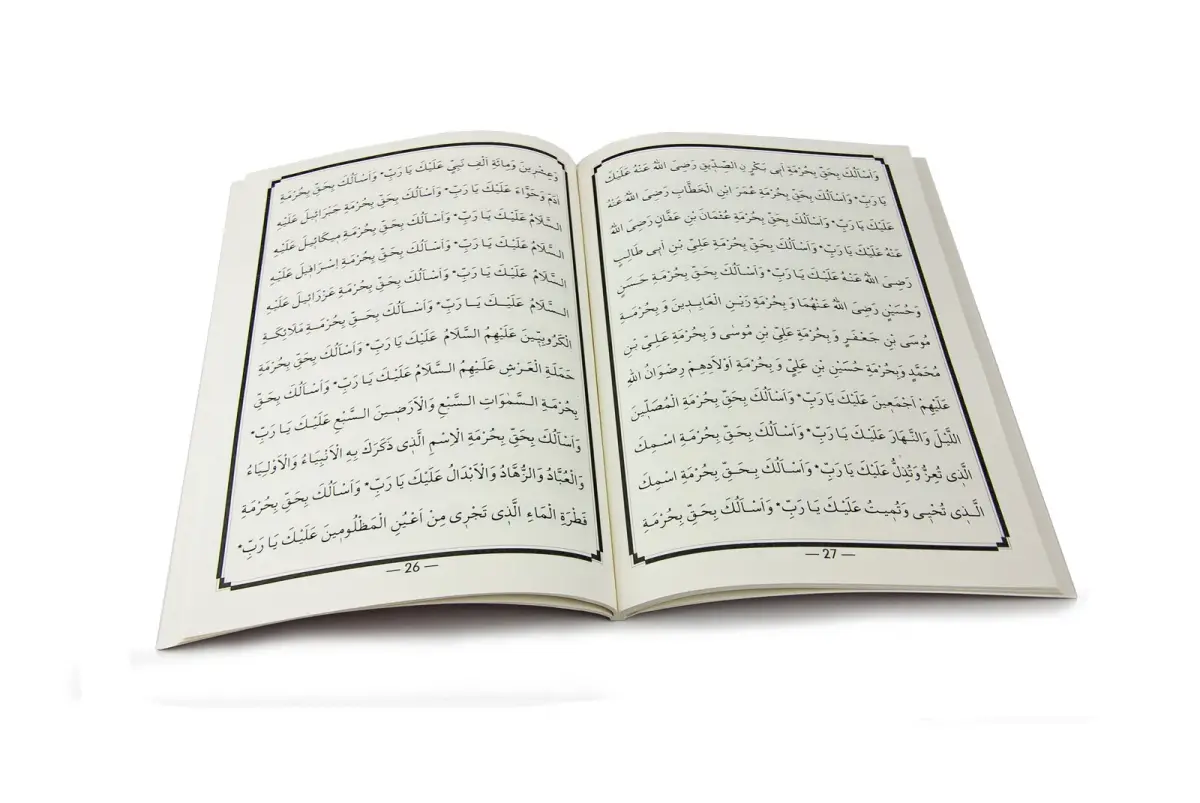 وَعِشْرِينَ وَمِائَةِ اَلْفِ نَبِيٍّ عَلَيْكَ يَا رَبِّ • وَاَسْاَلُكَ بِحَقِّ بِحُرْمَةِ
اٰدَمَ وَحَوَّاءَ عَلَيْكَ يَا رَبِّ • وَاَسْاَلُكَ بِحَقِّ بِحُرْمَةِ جَبْرَائِيلَ عَلَيْهِ
السَّلَامُ عَلَيْكَ يَا رَبِّ • وَاَسْاَلُكَ بِحَقِّ بِحُرْمَةِ مِيكَائِيلَ عَلَيْهِ
السَّلَامُ عَلَيْكَ يَا رَبِّ • وَاَسْاَلُكَ بِحَقِّ بِحُرْمَةِ اِسْرَافِيلَ عَلَيْهِ
السَّلَامُ عَلَيْكَ يَا رَبِّ • وَاَسْاَلُكَ بِحَقِّ بِحُرْمَةِ عَزْرَائِيلَ عَلَيْهِ
السَّلَامُ عَلَيْكَ يَا رَبِّ • وَاَسْاَلُكَ بِحَقِّ بِحُرْمَةِ مَلَائِكَةِ
الْكَرُوبِيِّينَ عَلَيْهِمُ السَّلَامُ عَلَيْكَ يَا رَبِّ • وَاَسْاَلُكَ بِحَقِّ بِحُرْمَةِ
حَمَلَةِ الْعَرْشِ عَلَيْهِمُ السَّلَامُ عَلَيْكَ يَا رَبِّ • وَاَسْاَلُكَ بِحَقِّ
بِحُرْمَةِ السَّمٰوَاتِ السَّبْعِ وَالْاَرَضِينَ السَّبْعِ عَلَيْكَ يَا رَبِّ •
وَاَسْاَلُكَ بِحَقِّ بِحُرْمَةِ الْاِسْمِ الَّذِي ذَكَرَكَ بِهِ الْاَنْبِيَاءُ وَالْاَوْلِيَاءُ
وَالْعُبَّادُ وَالزُّهَّادُ وَالْاَبْدَالُ عَلَيْكَ يَا رَبِّ • وَاَسْاَلُكَ بِحَقِّ بِحُرْمَةِ
قَطْرَةِ الْمَاءِ الَّذِي تَجْرِي مِنْ اَعْيُنِ الْمَظْلُومِينَ عَلَيْكَ يَا رَبِّ •
— 26 —
وَاَسْاَلُكَ بِحَقِّ بِحُرْمَةِ اَبِي بَكْرٍنِ الصِّدِّيقِ رَضِيَ اللّٰهُ عَنْهُ عَلَيْكَ
يَا رَبِّ • وَاَسْاَلُكَ بِحَقِّ بِحُرْمَةِ عُمَرَ ابْنِ الْخَطَّابِ رَضِيَ اللّٰهُ عَنْهُ
عَلَيْكَ يَا رَبِّ • وَاَسْاَلُكَ بِحَقِّ بِحُرْمَةِ عُثْمَانَ بْنِ عَفَّانٍ رَضِيَ اللّٰهُ
عَنْهُ عَلَيْكَ يَا رَبِّ • وَاَسْاَلُكَ بِحَقِّ بِحُرْمَةِ عَلِيِّ بْنِ اَبِي طَالِبٍ
رَضِيَ اللّٰهُ عَنْهُ عَلَيْكَ يَا رَبِّ • وَاَسْاَلُكَ بِحَقِّ بِحُرْمَةِ حَسَنٍ
وَحُسَيْنٍ رَضِيَ اللّٰهُ عَنْهُمَا وَ بِحُرْمَةِ زَيْنِ الْعَابِدِينَ وَ بِحُرْمَةِ
مُوسَى بْنِ جَعْفَرٍ وَ بِحُرْمَةِ عَلِيِّ بْنِ مُوسٰى وَ بِحُرْمَةِ عَلِيِّ بْنِ
مُحَمَّدٍ وَبِحُرْمَةِ حُسَيْنِ بْنِ عَلِيٍّ وَ بِحُرْمَةِ اَوْلَادِهِمْ رِضْوَانُ اللّٰهِ
عَلَيْهِمْ اَجْمَعِينَ عَلَيْكَ يَا رَبِّ • وَاَسْاَلُكَ بِحَقِّ بِحُرْمَةِ الْمُصَلِّينَ
اللَّيْلَ وَالنَّهَارَ عَلَيْكَ يَا رَبِّ • وَاَسْاَلُكَ بِحَقِّ بِحُرْمَةِ اسْمِكَ
الَّذِي تُعِزُّ وَتُذِلُّ عَلَيْكَ يَا رَبِّ • وَاَسْاَلُكَ بِحَقِّ بِحُرْمَةِ اسْمِكَ
الَّذِي تُحْيِي وَتُمِيتُ عَلَيْكَ يَا رَبِّ • وَاَسْاَلُكَ بِحَقِّ بِحُرْمَةِ
— 27 —